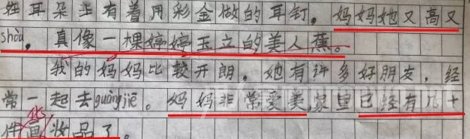 耳朵上有着用彩金做的耳钉。妈妈她又高又
shòu,真像一棵婷婷玉立的美人蕉。
我的妈妈比较开朗。她有许多好朋友,经
常一起去guàngjiē。妈妈非常爱美,家里已经有几十
件化妆品了。